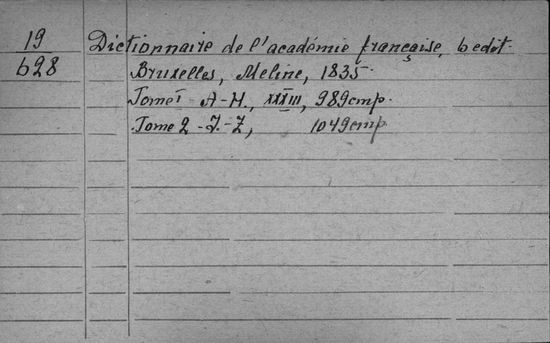 19
628
Dictionnaire de l'académie française, 6 edit.
Bruxelles, Meline, 1835.
Tome I A-H., XXXIII, 989 cmp.
Tome 2 - I-Z, 1049 cmp.